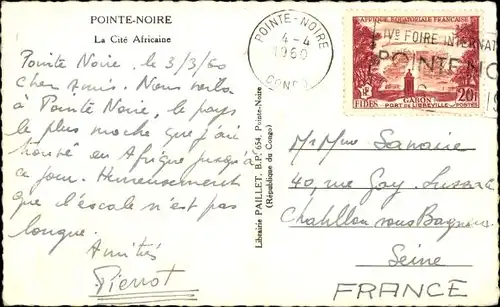 POINTE-NOIRE
La Cité Africaine
Pointe Noire. le 3/3/60
Cher Amis. Nous voila
à Pointe Noire, le pays
le plus moche que j'ai
trouvé en Afrique jusqu'à
ce jour. Heureusement
que l'escale n'est pas
longue.
Amitiés
Pierrot
Librairie PAILLET, B.P. 654, Pointe-Noire
(République du Congo)
POINTE-NOIRE
4-4
1960
CONGO
IVe FOIRE INTERNAT
POINTE-NO
AFRIQUE EQUATORIALE FRANÇAISE
RF
20F
FIDES
GABON
POSTES
PORT DE LIBREVILLE
Mr Mme
40, rue Gay. Lussac
Chatillon sous Bagneux
Seine
FRANCE